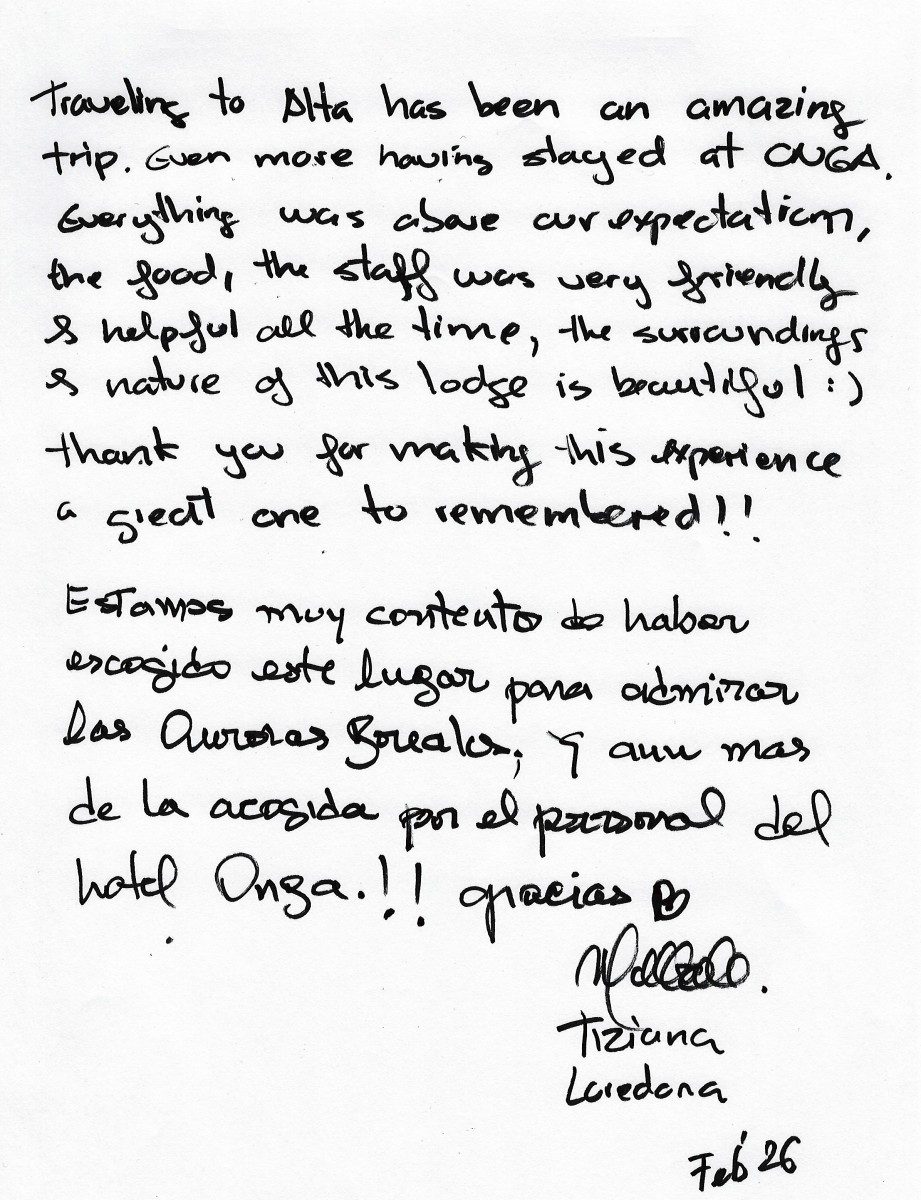 Traveling to Alta has been an amazing
trip. Even more having stayed at ONGA.
Everything was above our expectation,
the food, the staff was very friendly
& helpful all the time, the surroundings
& nature of this lodge is beautiful :)
thank you for making this experience
a great one to remembered!!
Estamos muy contento de haber
escogido este lugar para admirar
las Auroras Boreales; Y aun mas
de la acogida por el personal del
hotel Onga.!! gracias
Tiziana
Loredana
Feb 26